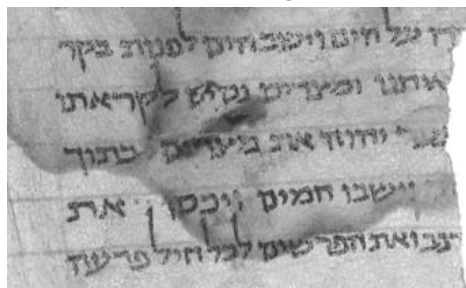 דו על הים וישב הים לפנות בקר
איתנו ומצרים נסים לקראתו
יהוה את מצרים בתוך
וישבו המים ויכסו את
רכב ואת הפרשים לכל חיל פרעה